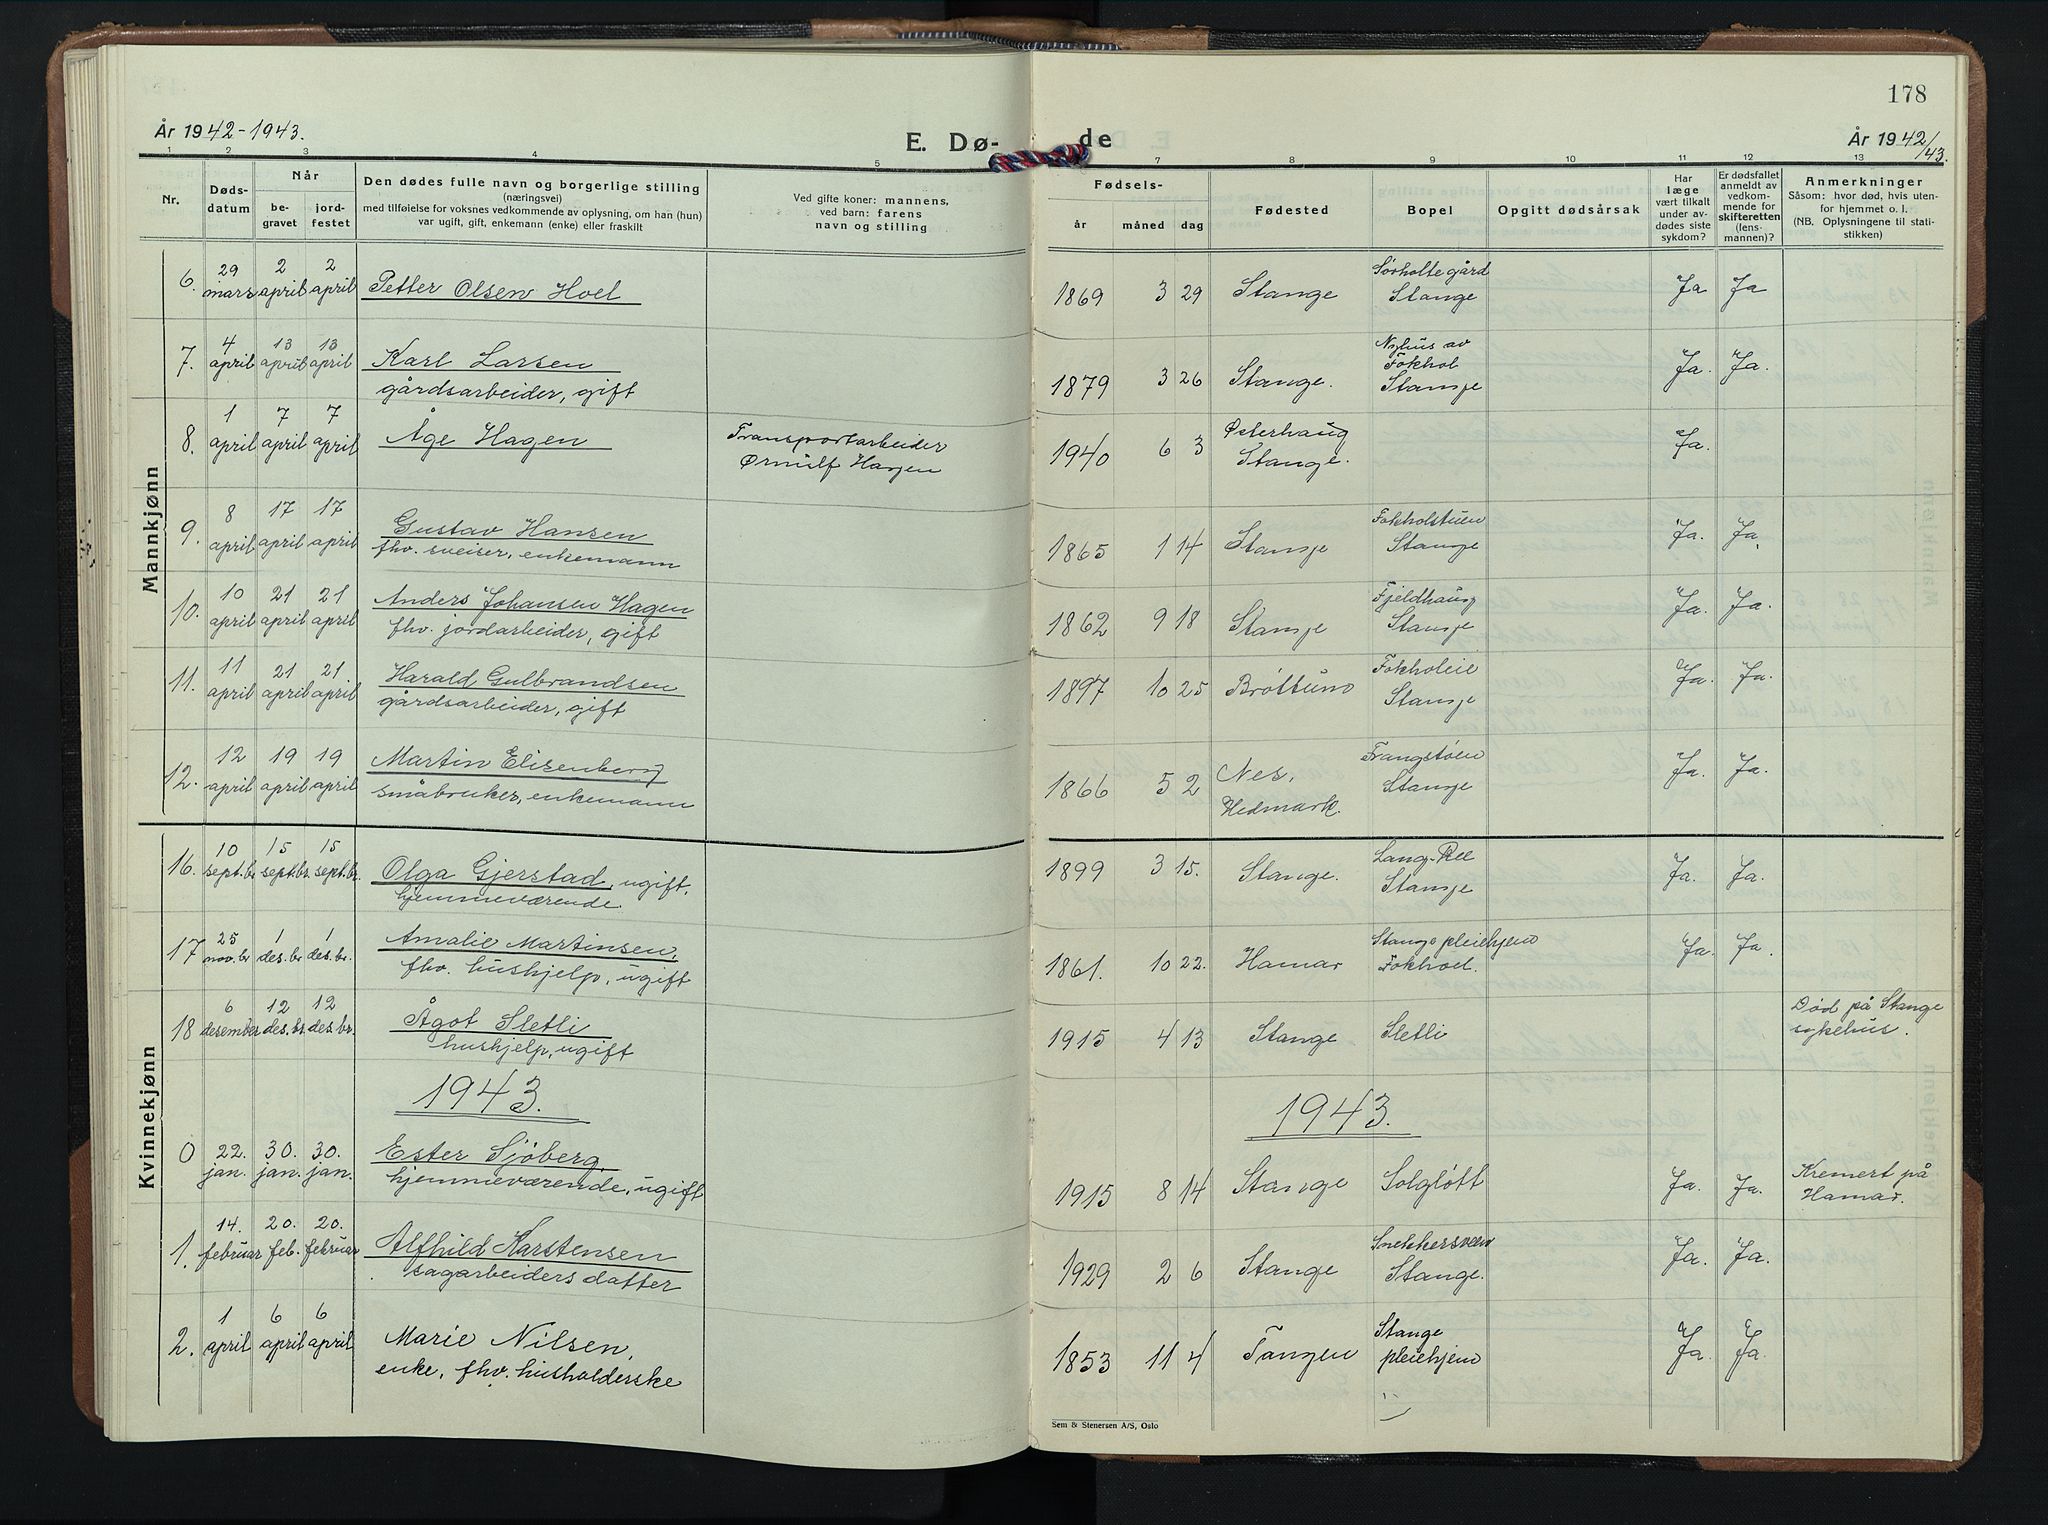 178
År 1942-1943.
E. Dø-
de
År 1942/43.
1 2 3 4 5 7 8 9 10 11 12 13
Nr.
Døds-
datum
Når
be-
gravet
jord-
festet
Den dødes fulle navn og borgerlige stilling
(næringsvei)
med tilføielse for voksnes vedkommende av oplysning, om han (hun)
var ugift, gift, enkemann (enke) eller fraskilt
Ved gifte koner: mannens,
ved barn: farens
navn og stilling
Fødsels-
år måned dag
Fødested
Bopel
Opgitt dødsårsak
Har
læge
vært tilkalt
under av-
dødes siste
sykdom?
Er dødsfallet
anmeldt av
vedkom-
mende for
skifteretten
(lens-
mannen)?
Anmerkninger
Såsom: hvor død, hvis uten-
for hjemmet o. l.
(NB. Oplysningene til stati-
stikken)
Mannkjønn
6. 29 mars 2 april 2 april Petter Olsen Hoel
1869 3 29 Stange Sørholte gård Stange Ja Ja
7. 4 april 13 april 13 april Karl Larsen
gårdsarbeider, gift
1879 3 26 Stange. Nyhus av Fokhol Stange Ja. Ja.
8. 1 april 7 april 7 april Åge Hagen
Transportarbeider
Ørnulf Hagen
1940 6 3 Østerhaug Stange. Ja.
9. 8 april 17 april 17 april Gustav Hansen
fhv. sveiser, enkemann
1865 1 14 Stange Fokholstuen Stange Ja. Ja.
10. 10 april 21 april 21 april Anders Johansen Hagen
fhv. jordarbeider, gift
1862 9 18 Stange Fjeldhaug Stange Ja. Ja.
11. 11 april 21 april 21 april Harald Gulbrandsen
gårdsarbeider, gift
1897 10 25 Brøttum Fokholeie Stange Ja. Ja.
12. 12 april 19 april 19 april Martin Elisenberg
småbruker, enkemann
1866 5 2 Nes, Hedmark. Frangstøen Stange Ja. Ja.
Kvinnekjønn
16. 10 sept.br 15 sept.br. 15 sept.br. Olga Gjerstad, ugift,
hjemmeværende.
1899 3 15. Stange. Lang-Ree Stange Ja. Ja.
17 25 nov.br 1 des.br 1 des.br. Amalie Martinsen,
fhv. hushjelp, ugift
1861. 10 22. Hamar Stange pleiehjem Fokhoel. Ja. Ja.
18 6 desember 12 des.br. 12 des.br. Ågot Sletli
hushjelp, ugift
1915 4 13 Stange Sletli
Død på Stange
sykehus.
1943.
1943.
0 22. jan. 30. jan. 30. jan. Ester Sjøberg,
hjemmeværende, ugift
1915 8 14 Stange Solgløtt Ja. Ja.
Kremert på
Hamar.
1. 14. februar 20. feb. 20. februar Alfhild Karstensen
sagarbeiders datter
1929 2 6 Stange Snekkersveen Stange. Ja. Ja.
2. 1 april 6 april 6 april Marie Nilsen,
enke, fhv. husholderske
1853 11 4 Tangen Stange pleiehjem Ja. Ja.
Sem & Stenersen A/S, Oslo